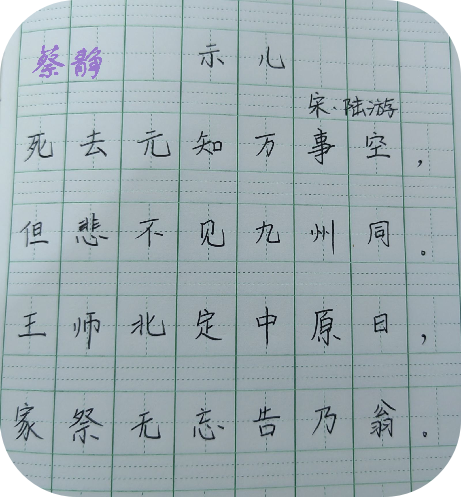 蔡静 示儿
宋·陆游
死去元知万事空，
但悲不见九州同。
王师北定中原日，
家祭无忘告乃翁。